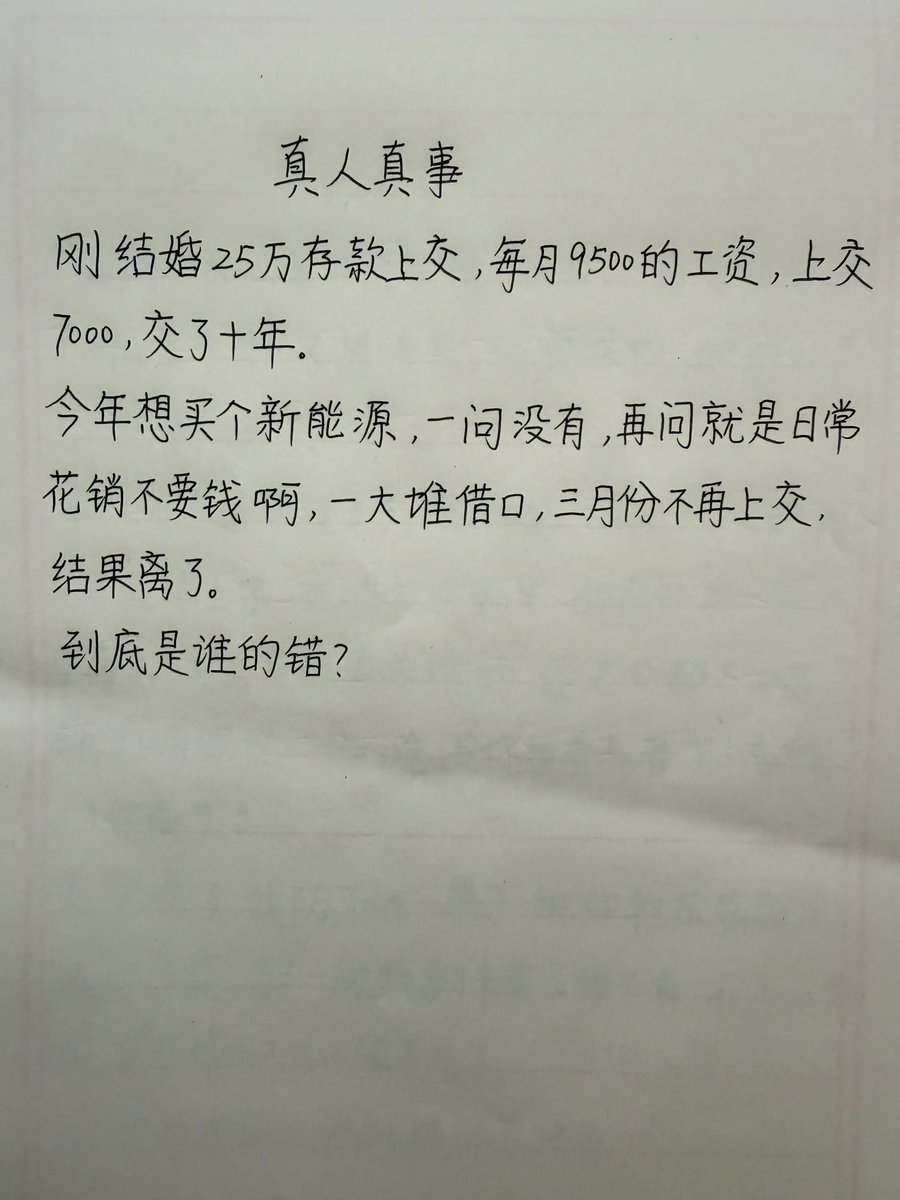 真人真事
刚结婚25万存款上交,每月9500的工资,上交
7000,交了十年。
今年想买个新能源,一问没有,再问就是日常
花销不要钱啊,一大堆借口,三月份不再上交,
结果离了。
到底是谁的错?